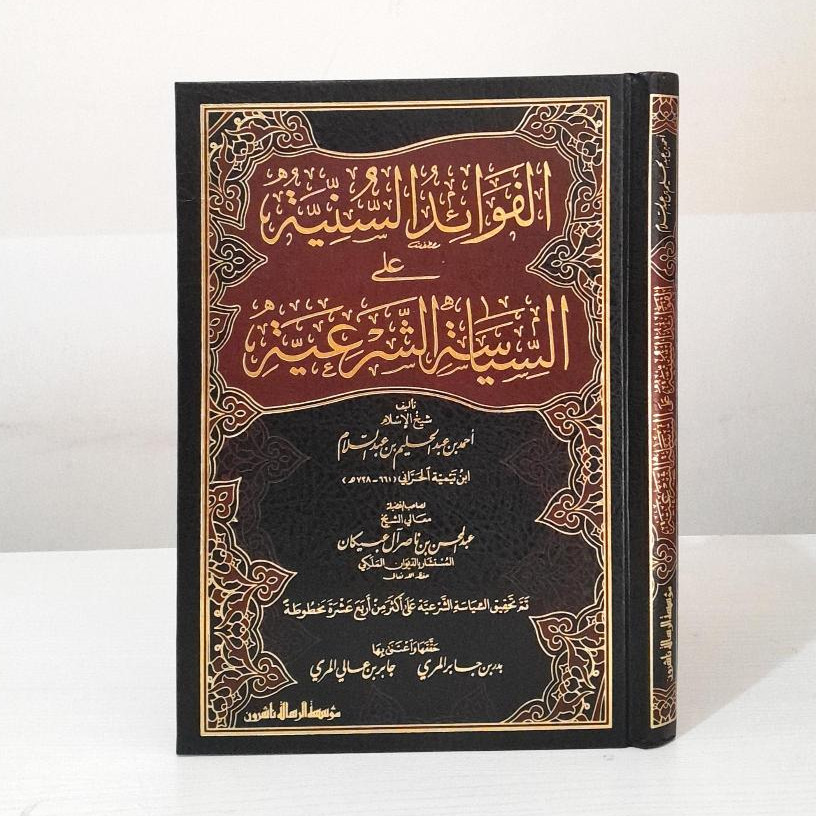 الفَوَائِدُ السُّنِيَّةُ
على
السِّيَاسَةِ الشَّرْعِيَّةِ
تأليف
شيخ الإسلام
أحمد بن عبد الحليم بن عبد السلام
ابن تيمية الحراني (٦٦١ - ٧٢٨هـ)
لصاحب الفضيلة
معالي الشيخ
عبد المحسن بن ناصر آل عبيكان
المستشار بالديوان الملكي
حفظه الله تعالى
تم تحقيق السياسة الشرعية على أكثر من أربع عشرة مخطوطة
حققها واعتنى بها
بدر بن جابر المري جابر بن عالي المري
مؤسسة الرسالة ناشرون
أحمد بن عبد الحليم بن عبد السلام
الفوائد السنية على السياسة الشرعية
مؤسسة الرسالة ناشرون